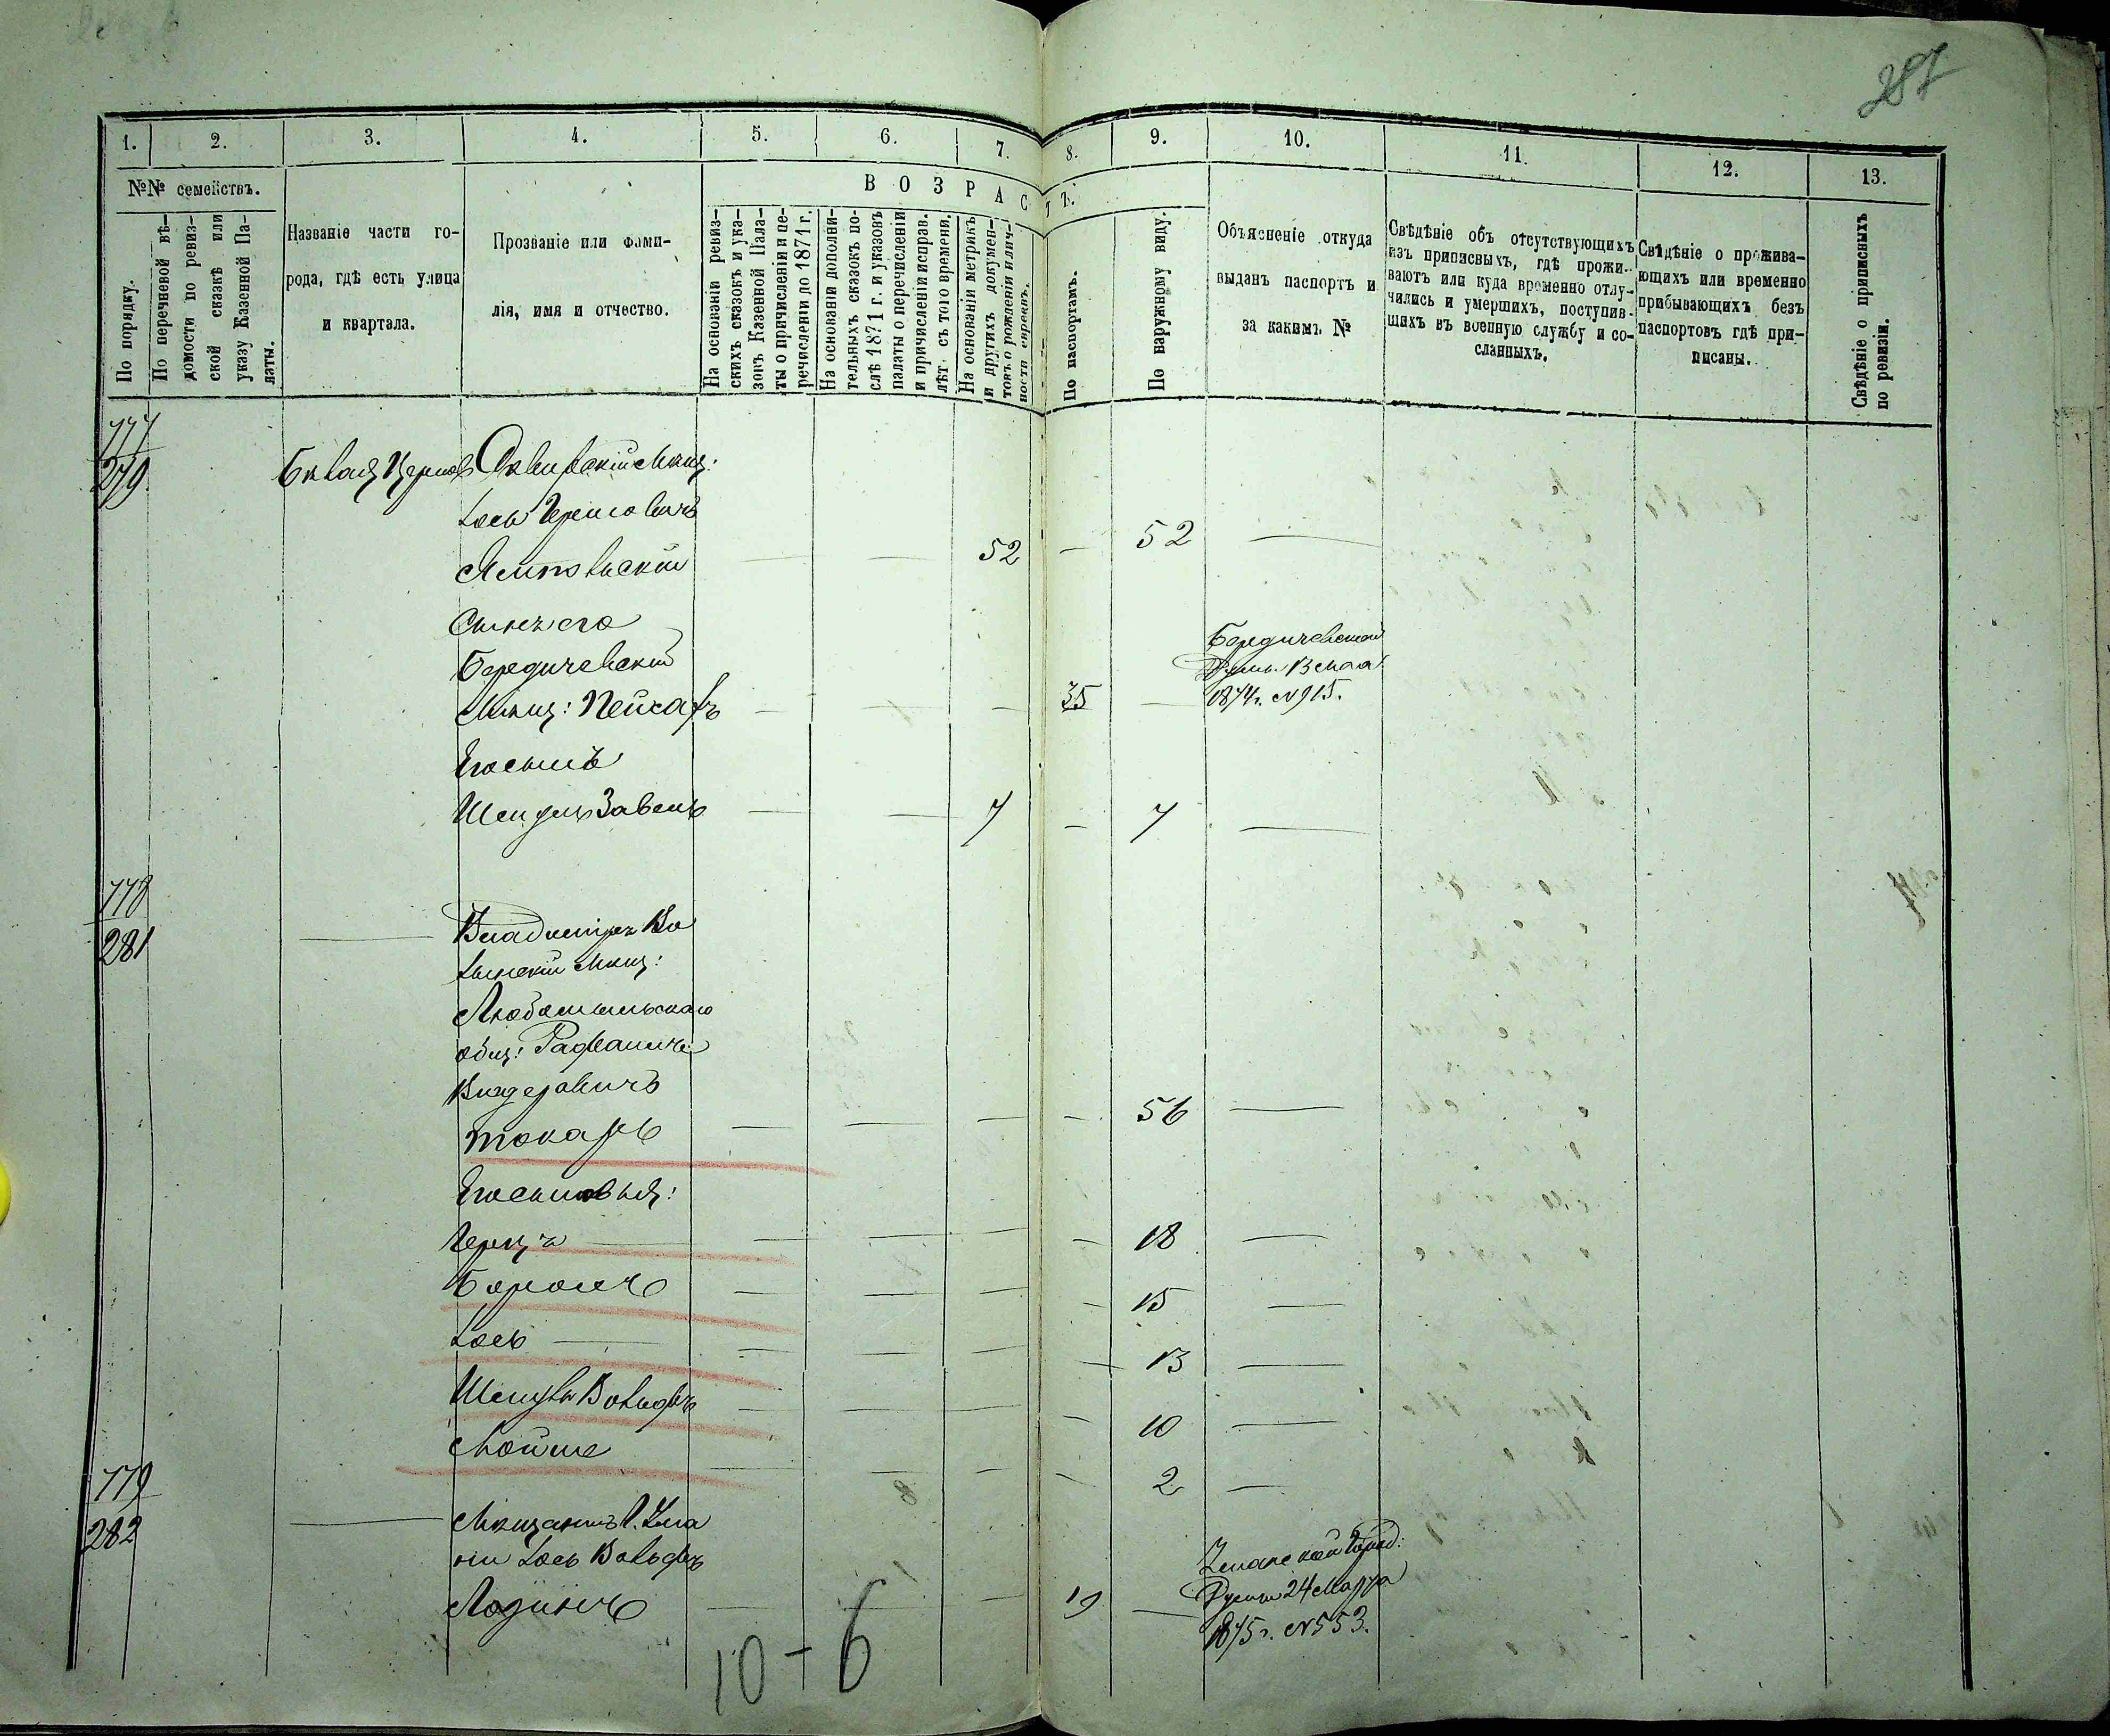 287
1. 2. 3. 4. 5. 6. 7. 8. 9. 10. 11. 12. 13.
№№ семействъ.
По порядку.
По перечневой вѣ-
домости по ревиз-
ской сказкѣ или
указу Казенной Па-
латы.
Названіе части го-
рода, гдѣ есть улица
и квартала.
Прозваніе или фами-
лія, имя и отчество.
ВОЗРАСТЪ.
На основаніи ревиз-
скихъ сказокъ и ука-
зовъ Казенной Пала-
ты о причисленіи и пе-
речисленіи до 1871 г.
На основаніи дополни-
тельныхъ сказокъ по-
слѣ 1871 г. и указовъ
палаты о перечисленіи
и причисленіи исправ.
лѣт. съ того времени.
На основаніи метрикъ
и другихъ докумен-
товъ о рожденіи и лич-
ности евреевъ.
По паспортамъ.
По наружному виду.
Объясненіе откуда
выданъ паспортъ и
за какимъ №
Свѣдѣніе объ отсутствующихъ
изъ приписныхъ, гдѣ прожи-
ваютъ или куда временно отлу-
чились и умершихъ, поступив-
шихъ въ военную службу и со-
сланныхъ.
Свѣдѣніе о прожива-
ющихъ или временно
прибывающихъ безъ
паспортовъ гдѣ при-
писаны.
Свѣдѣніе о приписныхъ
по ревизіи.
777
279
Сквирскій Мѣщ:
Іось Гершовичъ
52 — 52 —
Сынъ его
Бердичевскій
Мѣщ: Пейсахъ
35
Бердичевской
Думы 13 Мая
1874 г. № 915.
Его сынъ
7 — 7 —
778
281
Владиміръ Во
лынскій Мѣщ:
Любомльскаго
общ:
Токарь
56
Его сыновья:
Герцъ — 18
15
Іось — 13
Вольфъ
10
Мойше
2
779
282
Мѣщанинъ г. Ума
ни Іось Вольфъ
19
Уманской Город:
Думы 24 Марта
1875 г. № 553.
10 - 6